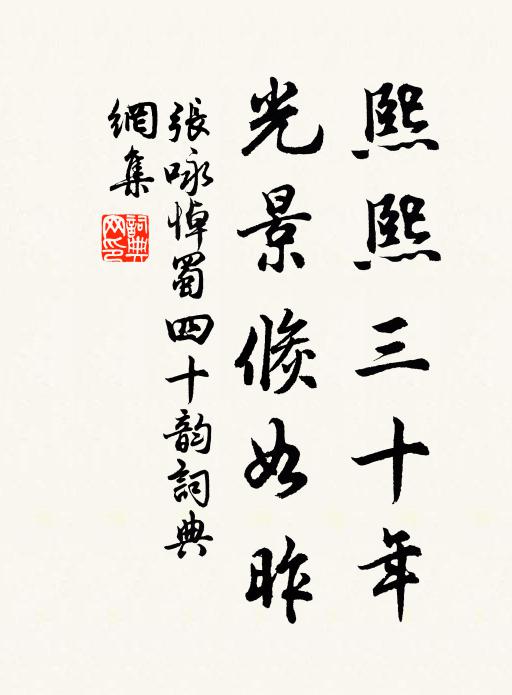 熙熙三十年
光景倏如昨
張咏悼蜀四十韵詞典
網集
詞典
网印